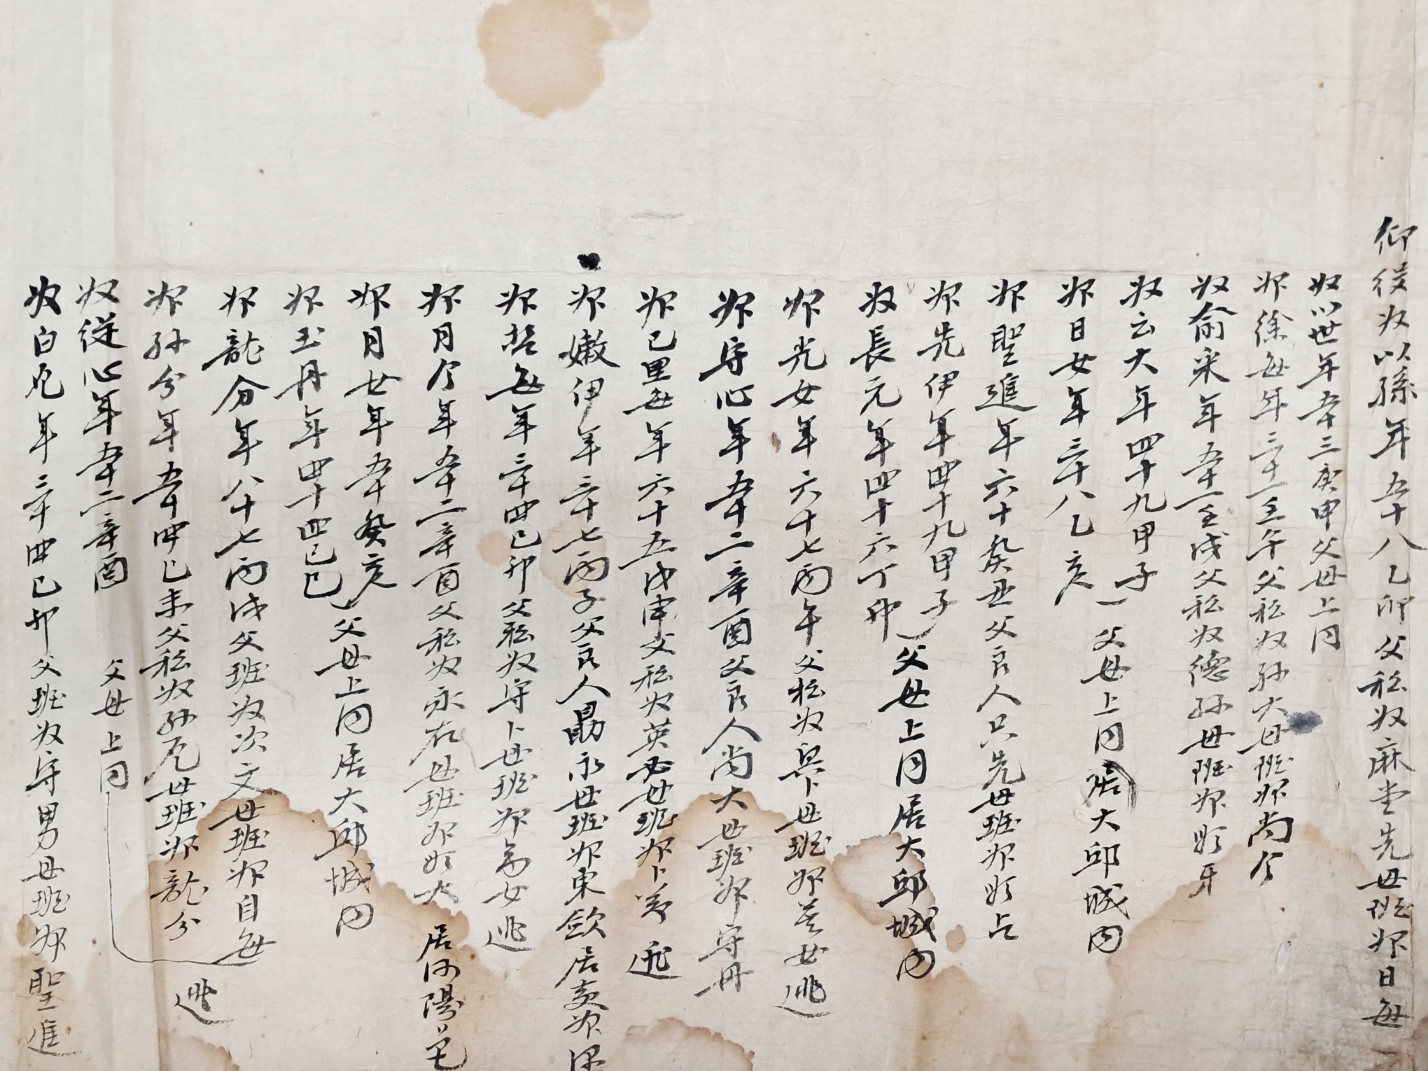 仰役奴以孫年五十八乙卯父私奴麻堂先母班婢日每
奴以世年五十三庚申父母上同
婢徐每年三十一壬午父私奴孫大母班婢尚今
奴俞宋年五十一壬戌父私奴德孫母班婢姒牙
奴云大年四十九甲子
婢日女年三十八乙亥
父母上同居大邱城内
婢聖進年六十癸丑父良人只先母班婢姒占
婢先伊年四十九甲子
奴長元年四十六丁卯
父母上同居大邱城内
婢光女年六十七丙午父私奴卜母班婢女逃
婢守心年五十二辛酉父良人尚大母班婢守丹
婢已里每年六十五戊申父私奴英母班婢卜逃
婢嫩伊年三十七丙子父良人勗永母班婢東居
婢每年三十四己卯父私奴守卜母班婢女逃
婢月今年五十二辛酉父私奴永石母班婢姒大居河陽邑
婢月女年五十癸亥
婢玉丹年四十四己巳
父母上同居大邱城内
婢龍分年八十七丙戌父班奴次文母班婢自每
婢孫分年五十四己未父私奴孫尼母班婢龍分
奴從心年五十二辛酉父母上同
逃
奴白只年三十四己卯父班奴守男母班婢聖進